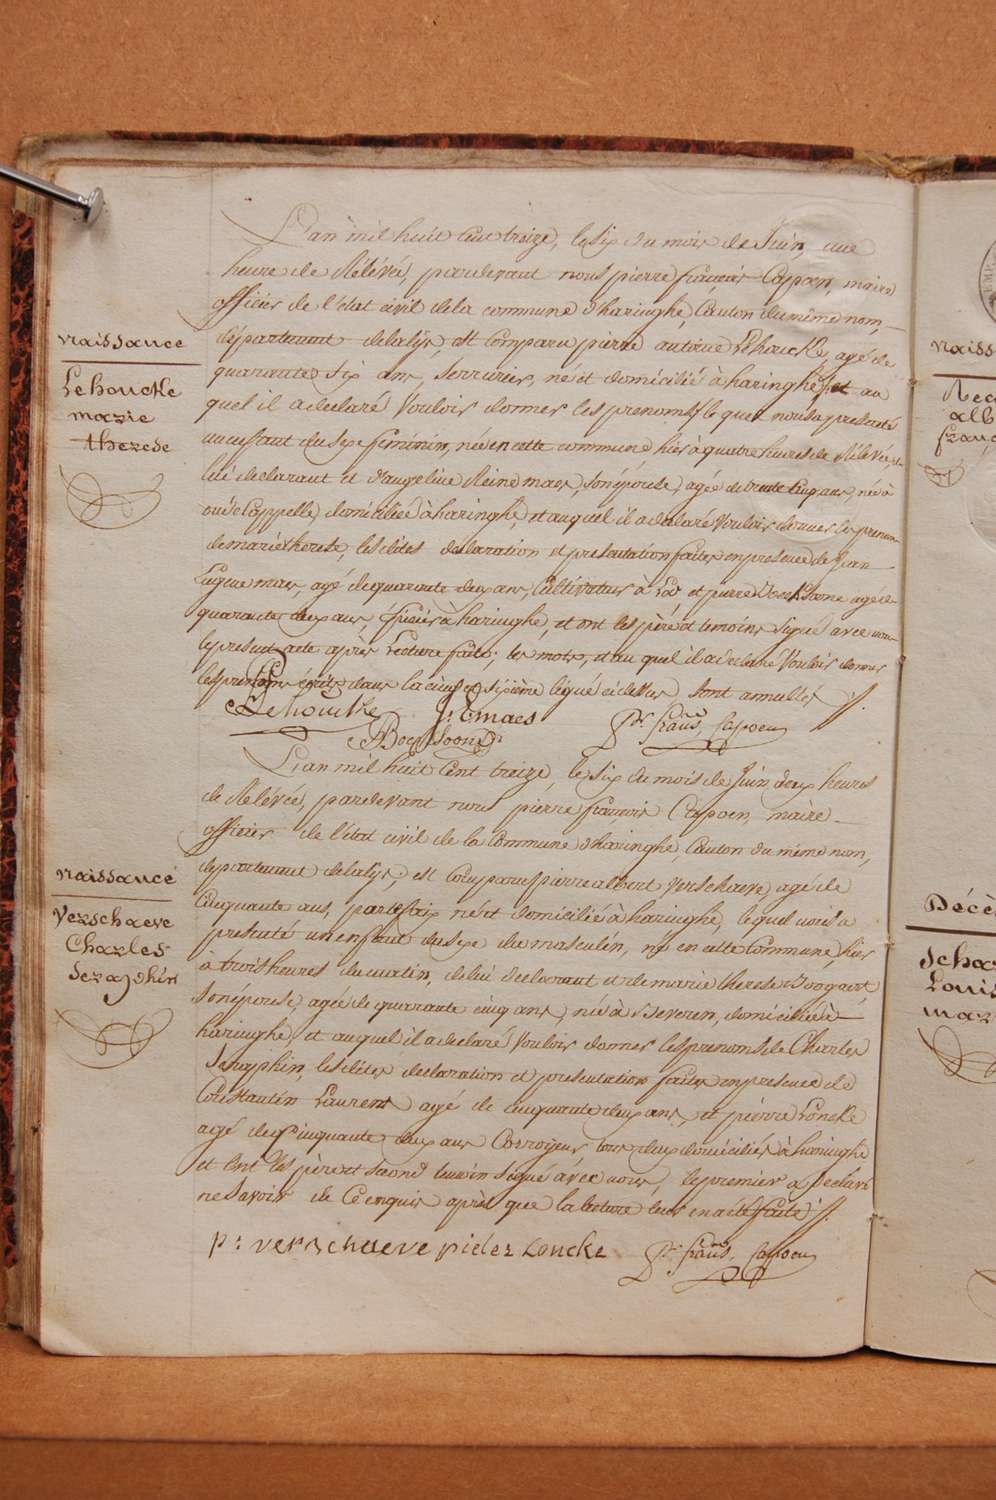 L'an mil huit cent treize, le six du mois de Juin, une
heure de Rélévée, pardevant nous pierre françois Capoen, maire
officier de l'état civil de la commune d'haringhe, Canton du même nom,
naissance
département de la lys, est comparu pierre antoine Lehoucke, agé de
Lehoucke
marie
therese
quarante six ans, serrurier, né et domicilié à haringhe, et au
quel il a declaré Vouloir donner les prenoms, lequel nous a presenté
un enfant du sexe feminin, née en cette commune hier à quatre heures de Rélévée, de
lui declarant et d'angeline Reine maes, son épouse, agée de trente cinq ans, née à
oude Cappelle, domiciliée à haringhe, et auquel il a declaré Vouloir donner les prenoms
de marie therese, les dites declaration et presentation faites en presence de Jean
Eugene maes, agé de quarante deux ans, Cultivateur à Loo et pierre Bocksoone agé de
quarante deux ans, épicier à haringhe, et ont les père et temoins signé avec nous
le present acte après Lecture faite; les mots, et au quel il a declaré Vouloir donner
les prenoms écrits dans la cinq et sixième ligne ci dessus sont annullés
Lehoucke J: E maes
Bocksoone Pre. frans. Capoen
L'an mil huit Cent treize, le six du mois de Juin deux heures
de Rélévée, pardevant nous pierre francois Capoen, maire
officier de l'état civil de la Commune d'haringhe, Canton du même nom,
naissance
departement de la lys, est comparu pierre albert Verschaeve, agé de
Verschaeve
Charles
Seraphin
Cinquante ans, né et domicilié à haringhe, lequel nous a
presenté un enfant du sexe masculin, né en cette Commune, hier
à trois heures du matin, de lui declarant et de marie therese Boogaert,
son épouse, agée de quarante cinq ans, née à domiciliée à
haringhe, et auquel il a declaré Vouloir donner les prenoms de Charles
Seraphin, les dites declaration et presentation faites en presence de
Constantin Laurent agé de cinquante deux ans, et pierre Loncke
agé de Cinquante deux ans Corroyeur tous deux domiciliés à haringhe
et ont les père et second temoin signé avec nous, le premier a declaré
ne savoir de Ce enquis après que la lecture leur en a été faite
p: verschaeve pieter Loncke Pre. frans. Capoen
naiss
alb
Décè
Louis